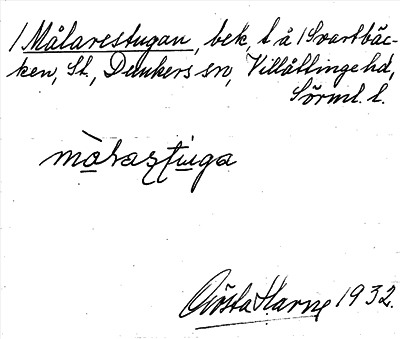 / Målarestugan, bek, l å / Svartbäc-
ken, St., Dunkers sn, Villåttinge hd,
Sörml. l.
mòlarstuga
Gösta Harne 1932.